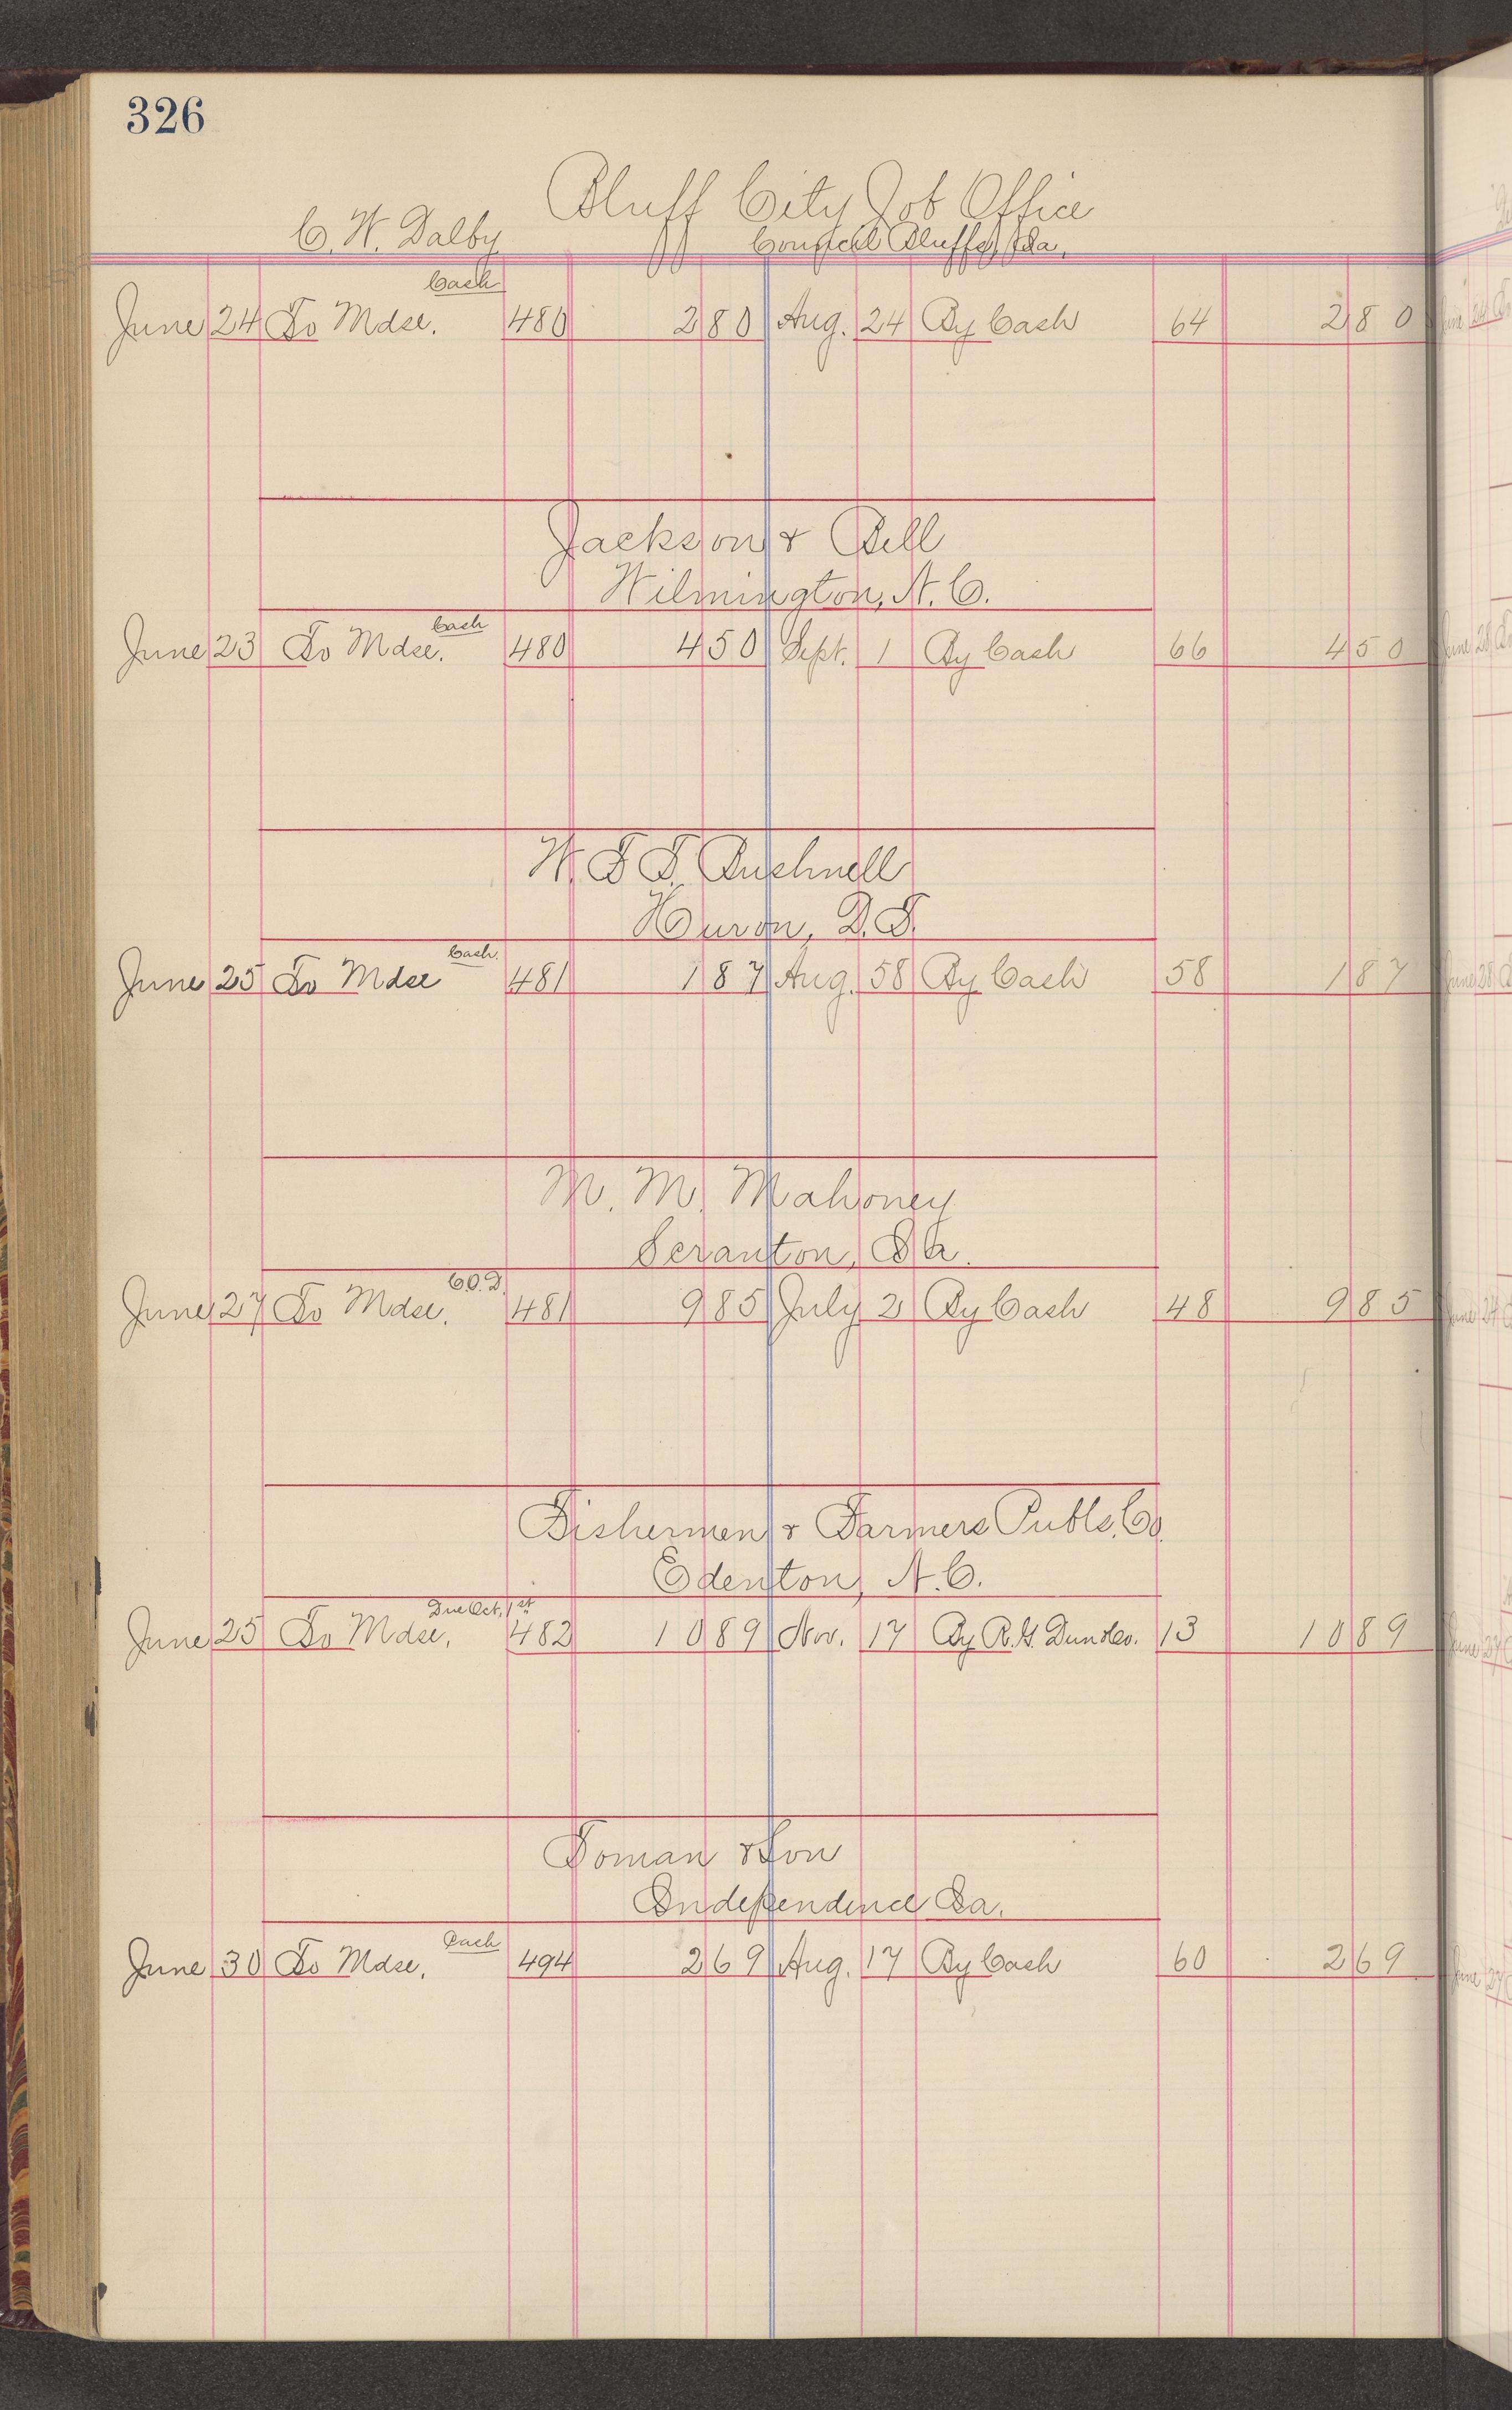 326
Bluff City Job Office
C. W. Dalby
Council Bluffs, Ia.
Cash
June 24 To Mdse. 480 2 80 Aug. 24 By Cash 64 2 80
Jackson & Bell
Wilmington, N. C.
Cash
June 23 To Mdse. 480 4 50 Sept. 1 By Cash 66 4 50
W. T. T. Bushnell
Huron, D. T.
Cash.
June 25 To Mdse 481 1 87 Aug. 58 By Cash 58 1 87
M. M. Mahoney
Scranton, Ia.
C.O.D.
June 27 To Mdse. 481 9 85 July 2 By Cash 48 9 85
Fishermen & Farmers Publs. Co.
Edenton, N. C.
Due Oct. 1st
June 25 To Mdse. 482 10 89 Nov. 17 By R. G. Dun &Co. 13 10 89
Toman & Son
Independence Ia.
Cash
June 30 To Mdse. 494 2 69 Aug. 17 By Cash 60 2 69